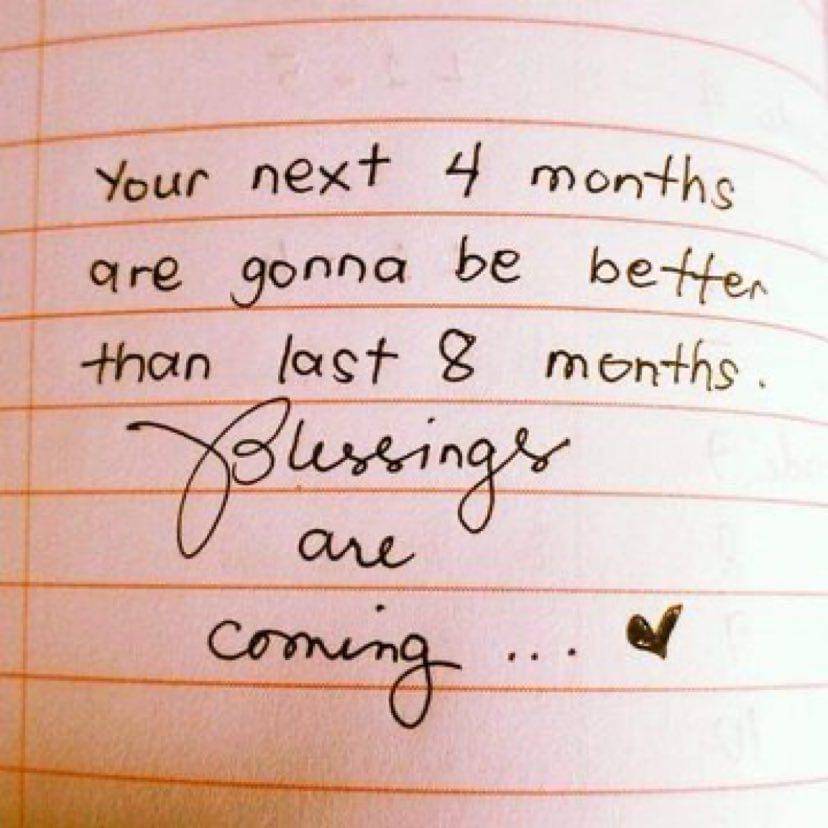 Your next 4 months
are gonna be better
than last 8 months.
Blessings
are
coming ... ♥